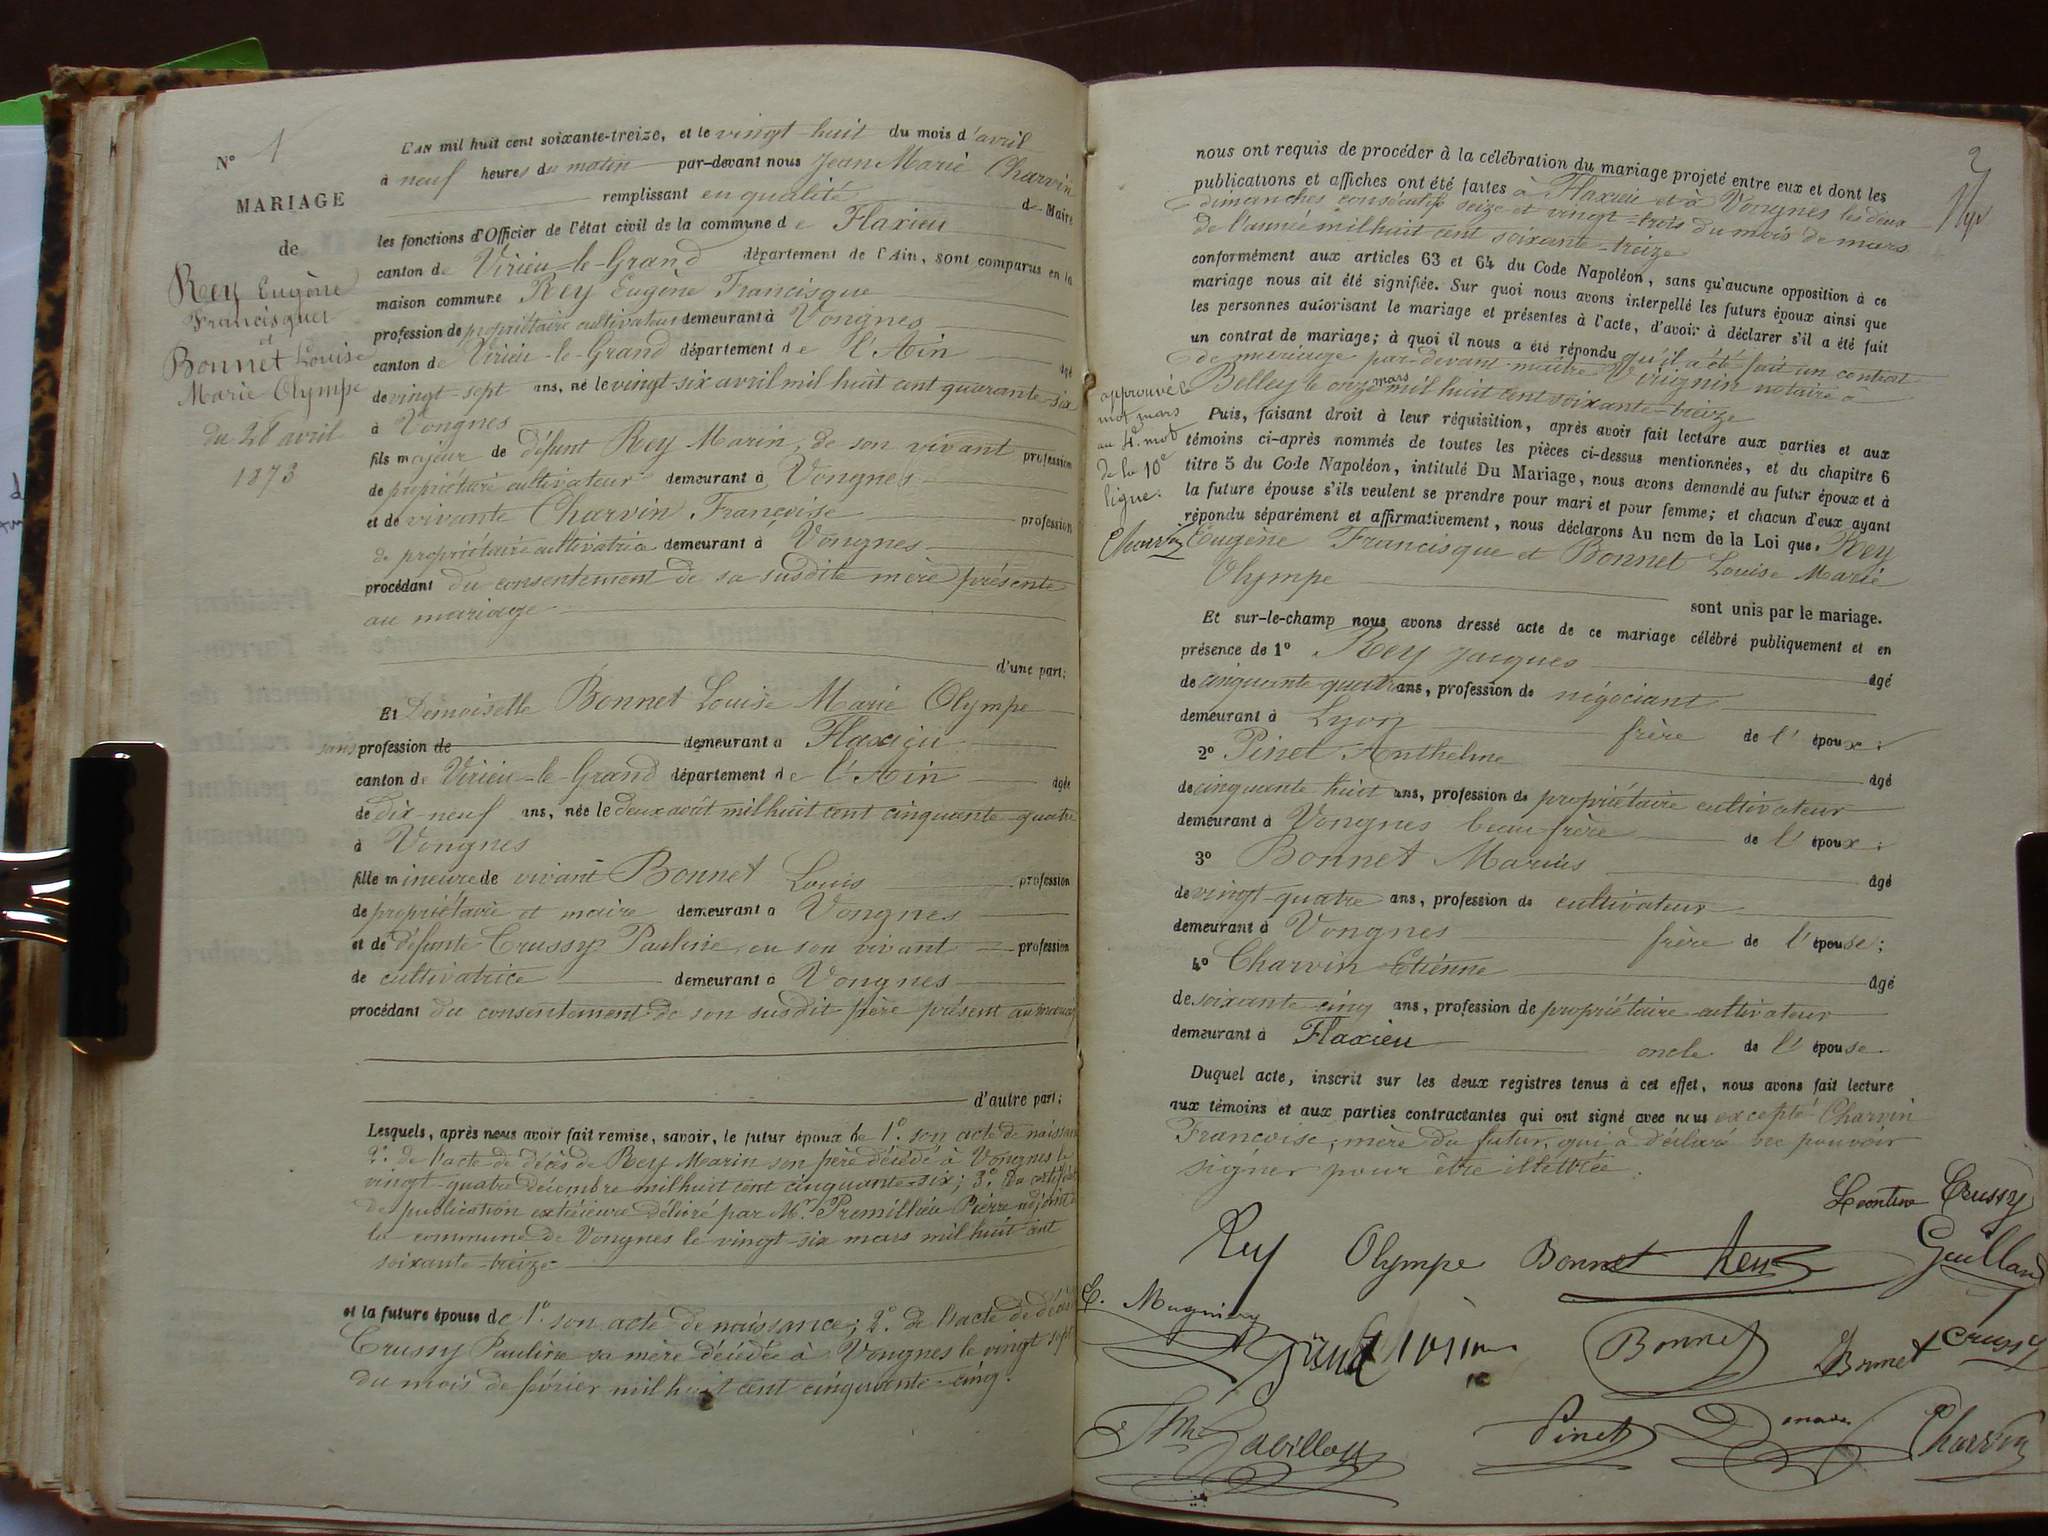 N° 1
MARIAGE
de
Rey Eugène
Francisque
et
Bonnet Louise
Marie Olympe
du 28 avril
1873
L'AN mil huit cent soixante-treize, et le vingt-huit du mois d'avril
à neuf heures du matin par-devant nous Jean Marie Charvin
remplissant en qualité d Maire
les fonctions d'Officier de l'état civil de la commune de Flaxieu
canton de Virieu-le-Grand département de l'Ain, sont comparus en la
maison commune Rey Eugène Francisque
profession de propriétaire cultivateur demeurant à Vongnes
canton de Virieu-le-Grand département de l'Ain âgé
de vingt-sept ans, né le vingt-six avril mil huit cent quarante-six
à Vongnes
fils majeur de défunt Rey Marin, de son vivant profession
de propriétaire cultivateur demeurant à Vongnes
et de vivante Charvin Françoise profession
de propriétaire cultivatrice demeurant à Vongnes
procédant du consentement de sa susdite mère présente
au mariage
d'une part;
Et Demoiselle Bonnet Louise Marie Olympe
sans profession de demeurant à Flaxieu
canton de Virieu-le-Grand département de l'Ain âgée
de dix-neuf ans, née le deux août mil huit cent cinquante-quatre
à Vongnes
fille mineure de vivant Bonnet Louis profession
de propriétaire et maire demeurant à Vongnes
et de défunte Crussy Pauline, en son vivant profession
de cultivatrice demeurant à Vongnes
procédant du consentement de son susdit père présent au mariage
d'autre part;
Lesquels, après nous avoir fait remise, savoir, le futur époux de 1° son acte de naissance
2° de l'acte de décès de Rey Marin son père décédé à Vongnes le
vingt-quatre décembre mil huit cent cinquante-six; 3° Du certificat
de publication extérieure délivré par Mr Premillieu Pierre adjoint de
la commune de Vongnes le vingt-six mars mil huit cent
soixante-treize
et la future épouse de 1° son acte de naissance; 2° de l'acte de décès
Crussy Pauline sa mère décédée à Vongnes le vingt-sept
du mois de février mil huit cent cinquante-cinq.
2
nous ont requis de procéder à la célébration du mariage projeté entre eux et dont les
publications et affiches ont été faites à Flaxieu et à Vongnes les deux
dimanches consécutifs seize et vingt-trois du mois de mars
de l'année mil huit cent soixante-treize
conformément aux articles 63 et 64 du Code Napoléon, sans qu'aucune opposition à ce
mariage nous ait été signifiée. Sur quoi nous avons interpellé les futurs époux ainsi que
les personnes autorisant le mariage et présentes à l'acte, d'avoir à déclarer s'il a été fait
un contrat de mariage; à quoi il nous a été répondu qu'il a été fait un contrat
de mariage par-devant maître notaire à
Belley le onze mars mil huit cent soixante-treize
approuvé le
mot mars
au 4e mot
de la 10e
ligne:
Charvin
Puis, faisant droit à leur réquisition, après avoir fait lecture aux parties et aux
témoins ci-après nommés de toutes les pièces ci-dessus mentionnées, et du chapitre 6
titre 5 du Code Napoléon, intitulé Du Mariage, nous avons demandé au futur époux et à
la future épouse s'ils veulent se prendre pour mari et pour femme; et chacun d'eux ayant
répondu séparément et affirmativement, nous déclarons Au nom de la Loi que, Rey
Eugène Francisque et Bonnet Louise Marie
Olympe
sont unis par le mariage.
Et sur-le-champ nous avons dressé acte de ce mariage célébré publiquement et en
présence de 1° Rey Jacques âgé
de cinquante-quatre ans, profession de négociant
demeurant à Lyon frère de l'époux;
2° Pinet Anthelme âgé
de cinquante huit ans, profession de propriétaire cultivateur
demeurant à Vongnes beau-frère de l'époux;
3° Bonnet Marius âgé
de vingt-quatre ans, profession de cultivateur
demeurant à Vongnes frère de l'épouse;
4° Charvin Etienne âgé
de soixante-cinq ans, profession de propriétaire cultivateur
demeurant à Flaxieu oncle de l'épouse.
Duquel acte, inscrit sur les deux registres tenus à cet effet, nous avons fait lecture
aux témoins et aux parties contractantes qui ont signé avec nous excepté Charvin
Françoise, mère du futur, qui a déclaré ne pouvoir
signer pour être illettrée.
Léontine Crussy
Rey Olympe Bonnet Rey Guilland
Bonnet Bonnet Crussy
Pinet Charvin